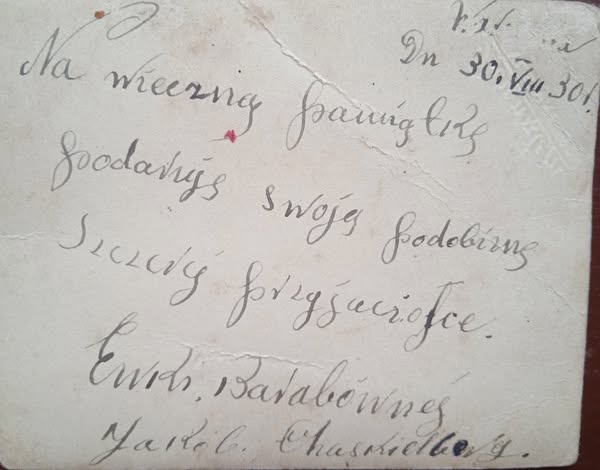 Dn 30. VIII 30 r.
Na wieczną pamiątkę
podaruję swoją podobiznę
Szczerej przyjaciołce.
Jakób. Chaskielberg.